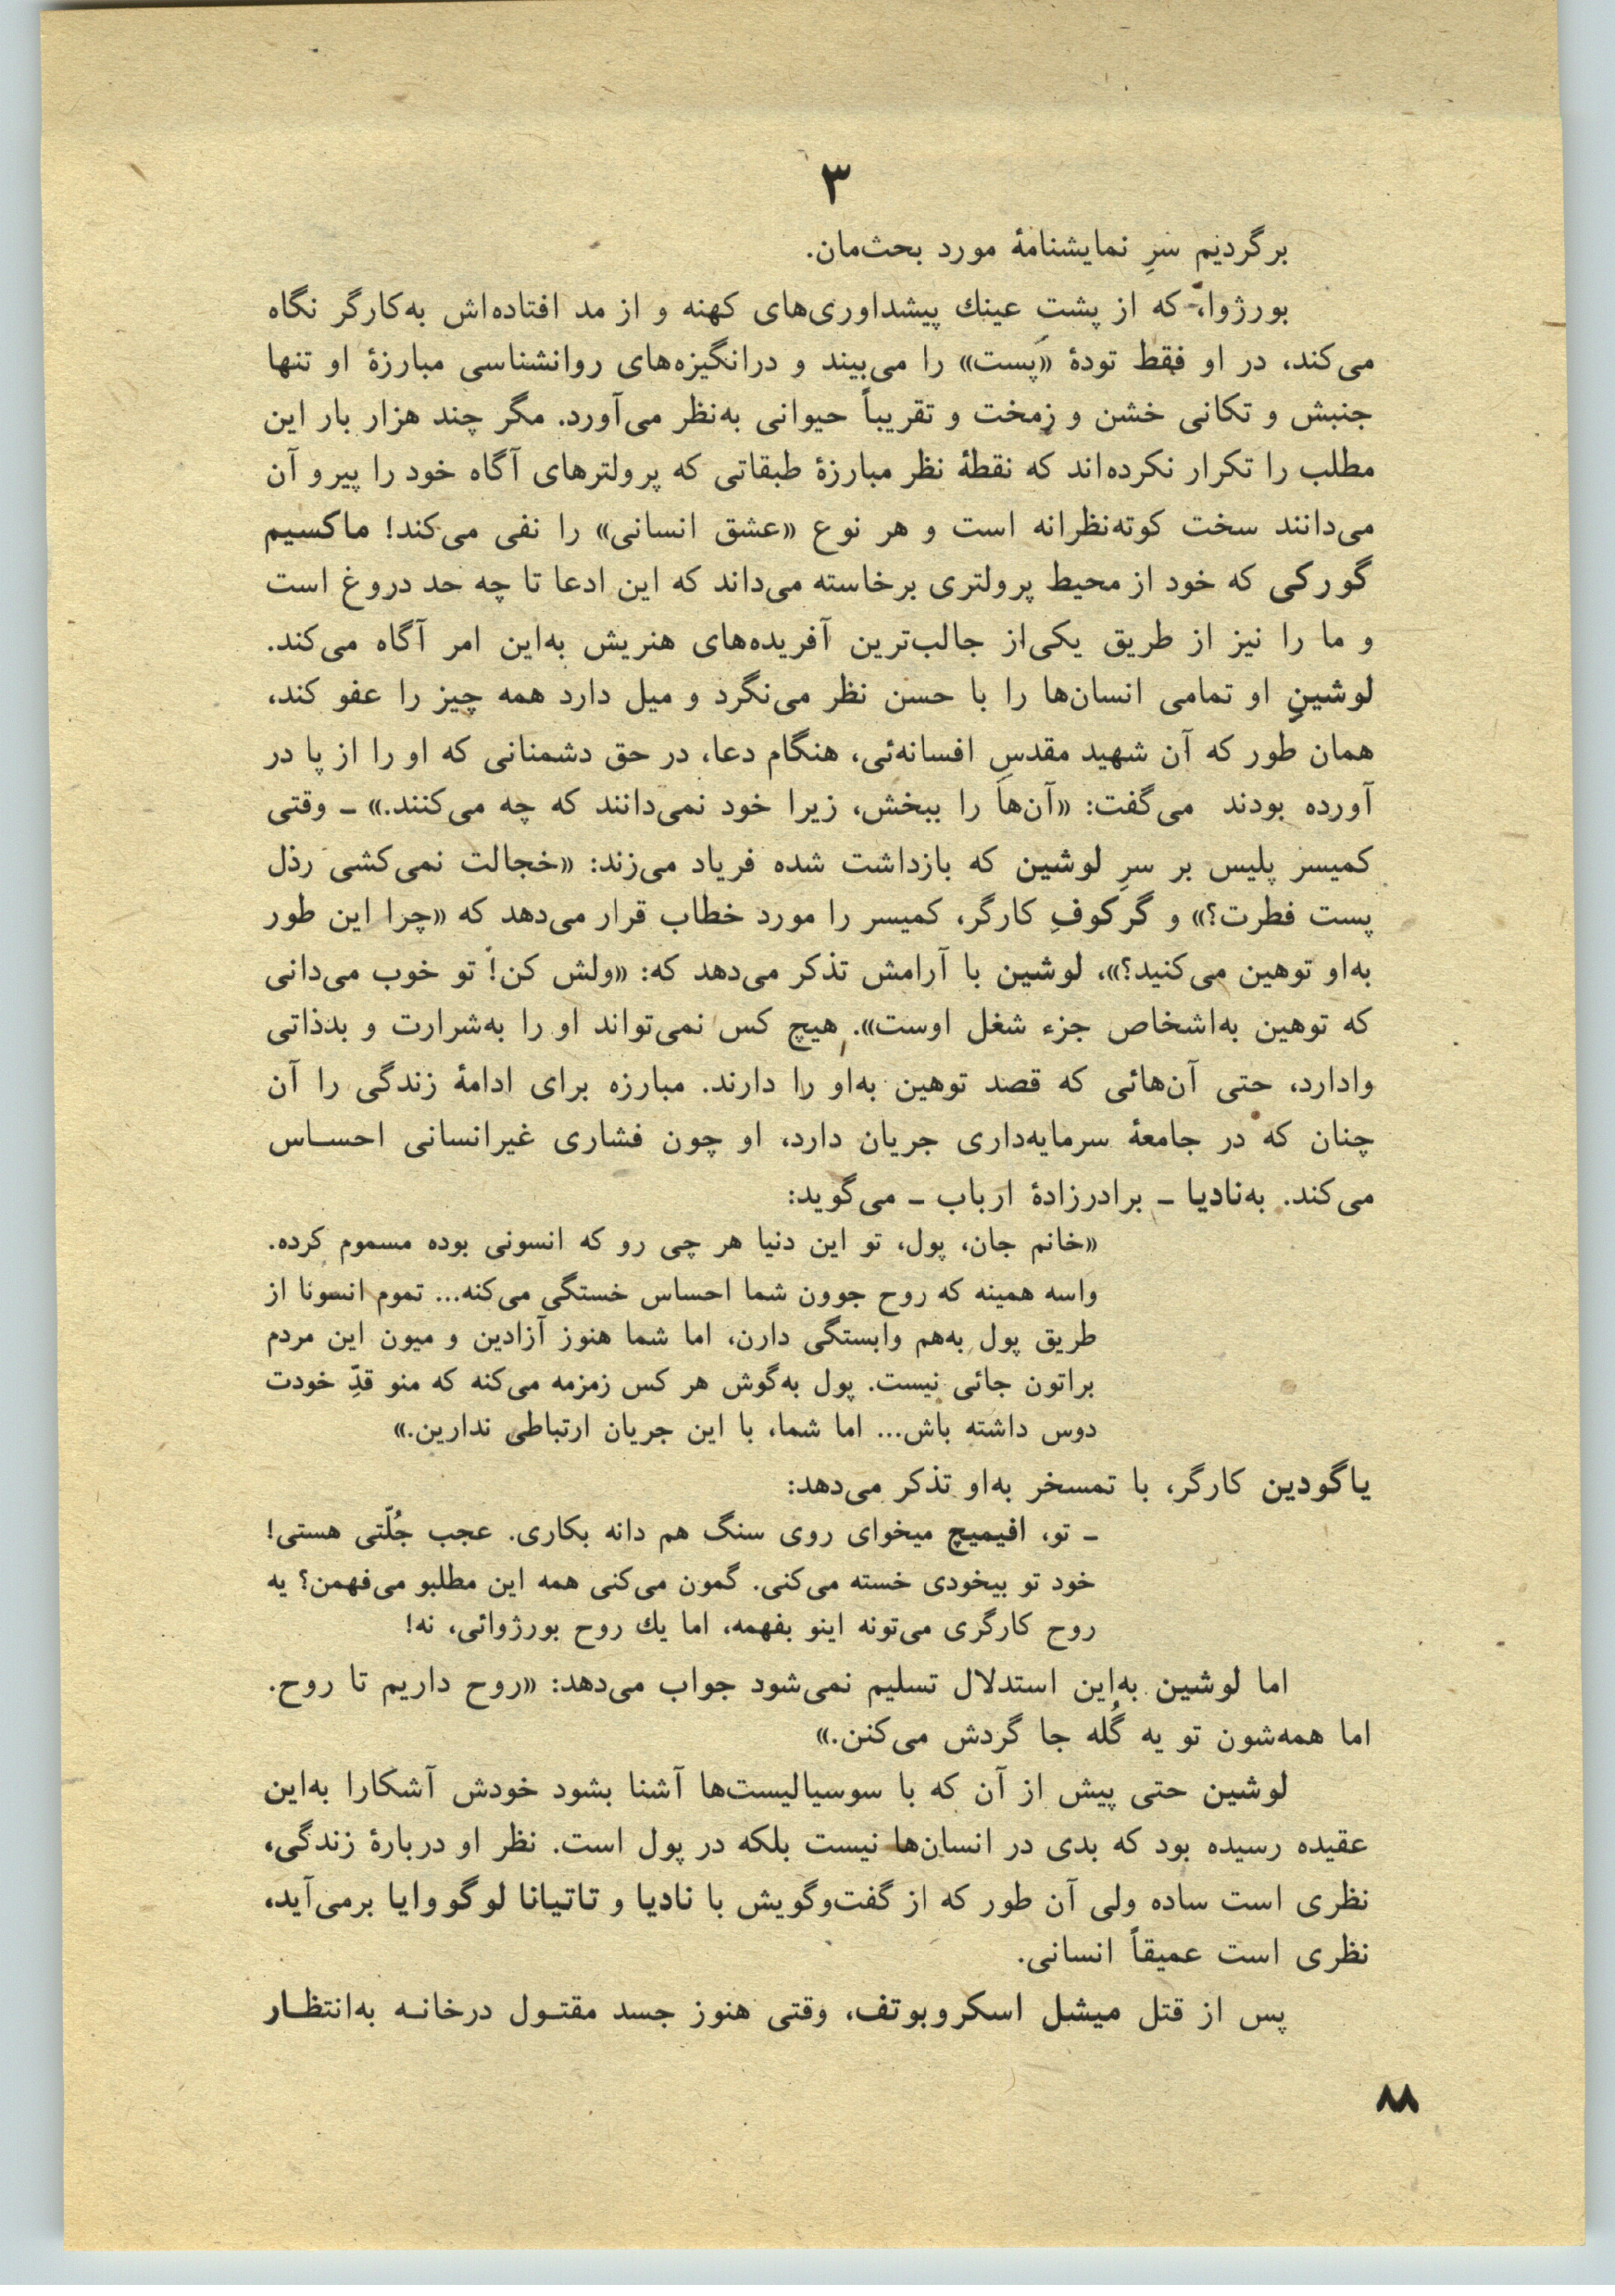 ۳
برگردیم سَرِ نمایشنامهٔ مورد بحث‌مان.
بورژوا، که از پشتِ عینك پیشداوری‌های کهنه و از مد افتاده‌اش به‌کارگر نگاه
می‌کند، در او فقط تودهٔ «پَست» را می‌بیند و درانگیزه‌های روانشناسی مبارزهٔ او تنها
جنبش و تکانی خشن و زمخت و تقریباً حیوانی به‌نظر می‌آورد. مگر چند هزار بار این
مطلب را تکرار نکرده‌اند که نقطهٔ نظر مبارزهٔ طبقاتی که پرولترهای آگاه خود را پیرو آن
می‌دانند سخت کوته‌نظرانه است و هر نوع «عشق انسانی» را نفی می‌کند! ماکسیم
گورکی که خود از محیط پرولتری برخاسته می‌داند که این ادعا تا چه حد دروغ است
و ما را نیز از طریق یکی‌از جالب‌ترین آفریده‌های هنریش به‌این امر آگاه می‌کند.
لوشینِ او تمامی انسان‌ها را با حسن نظر می‌نگرد و میل دارد همه چیز را عفو کند،
همان طور که آن شهید مقدسِ افسانه‌ئی، هنگام دعا، در حق دشمنانی که او را از پا در
آورده بودند می‌گفت: «آن‌ها را ببخش، زیرا خود نمی‌دانند که چه می‌کنند.» ـ وقتی
کمیسر پلیس بر سرِ لوشین که بازداشت شده فریاد می‌زند: «خجالت نمی‌کشی رذل
پست فطرت؟» و گرکوفِ کارگر، کمیسر را مورد خطاب قرار می‌دهد که «چرا این طور
به‌او توهین می‌کنید؟»، لوشین با آرامش تذکر می‌دهد که: «ولش کن! تو خوب می‌دانی
که توهین به‌اشخاص جزء شغل اوست». هیچ کس نمی‌تواند او را به‌شرارت و بدذاتی
وادارد، حتی آن‌هائی که قصد توهین به‌او را دارند. مبارزه برای ادامهٔ زندگی را آن
چنان که در جامعهٔ سرمایه‌داری جریان دارد، او چون فشاری غیرانسانی احساس
می‌کند. به‌نادیا ـ برادرزادهٔ ارباب ـ می‌گوید:
«خانم جان، پول، تو این دنیا هر چی رو که انسونی بوده مسموم کرده.
واسه همینه که روح جوون شما احساس خستگی می‌کنه... تموم انسونا از
طریق پول به‌هم وابستگی دارن، اما شما هنوز آزادین و میون این مردم
براتون جائی نیست. پول به‌گوش هر کس زمزمه می‌کنه که منو قدِّ خودت
دوس داشته باش... اما شما، با این جریان ارتباطی ندارین.»
یاگودین کارگر، با تمسخر به‌او تذکر می‌دهد:
ـ تو، افیمیچ میخوای روی سنگ هم دانه بکاری. عجب جُلّتی هستی!
خود تو بیخودی خسته می‌کنی. گمون می‌کنی همه این مطلبو می‌فهمن؟ یه
روح کارگری می‌تونه اینو بفهمه، اما یك روح بورژوائی، نه!
اما لوشین به‌این استدلال تسلیم نمی‌شود جواب می‌دهد: «روح داریم تا روح.
اما همه‌شون تو یه گُله جا گردش می‌کنن.»
لوشین حتی پیش از آن که با سوسیالیست‌ها آشنا بشود خودش آشکارا به‌این
عقیده رسیده بود که بدی در انسان‌ها نیست بلکه در پول است. نظر او دربارهٔ زندگی،
نظری است ساده ولی آن طور که از گفت‌وگویش با نادیا و تاتیانا لوگووایا برمی‌آید،
نظری است عمیقاً انسانی.
پس از قتل میشل اسکروبوتف، وقتی هنوز جسد مقتول درخانه به‌انتظار
۸۸